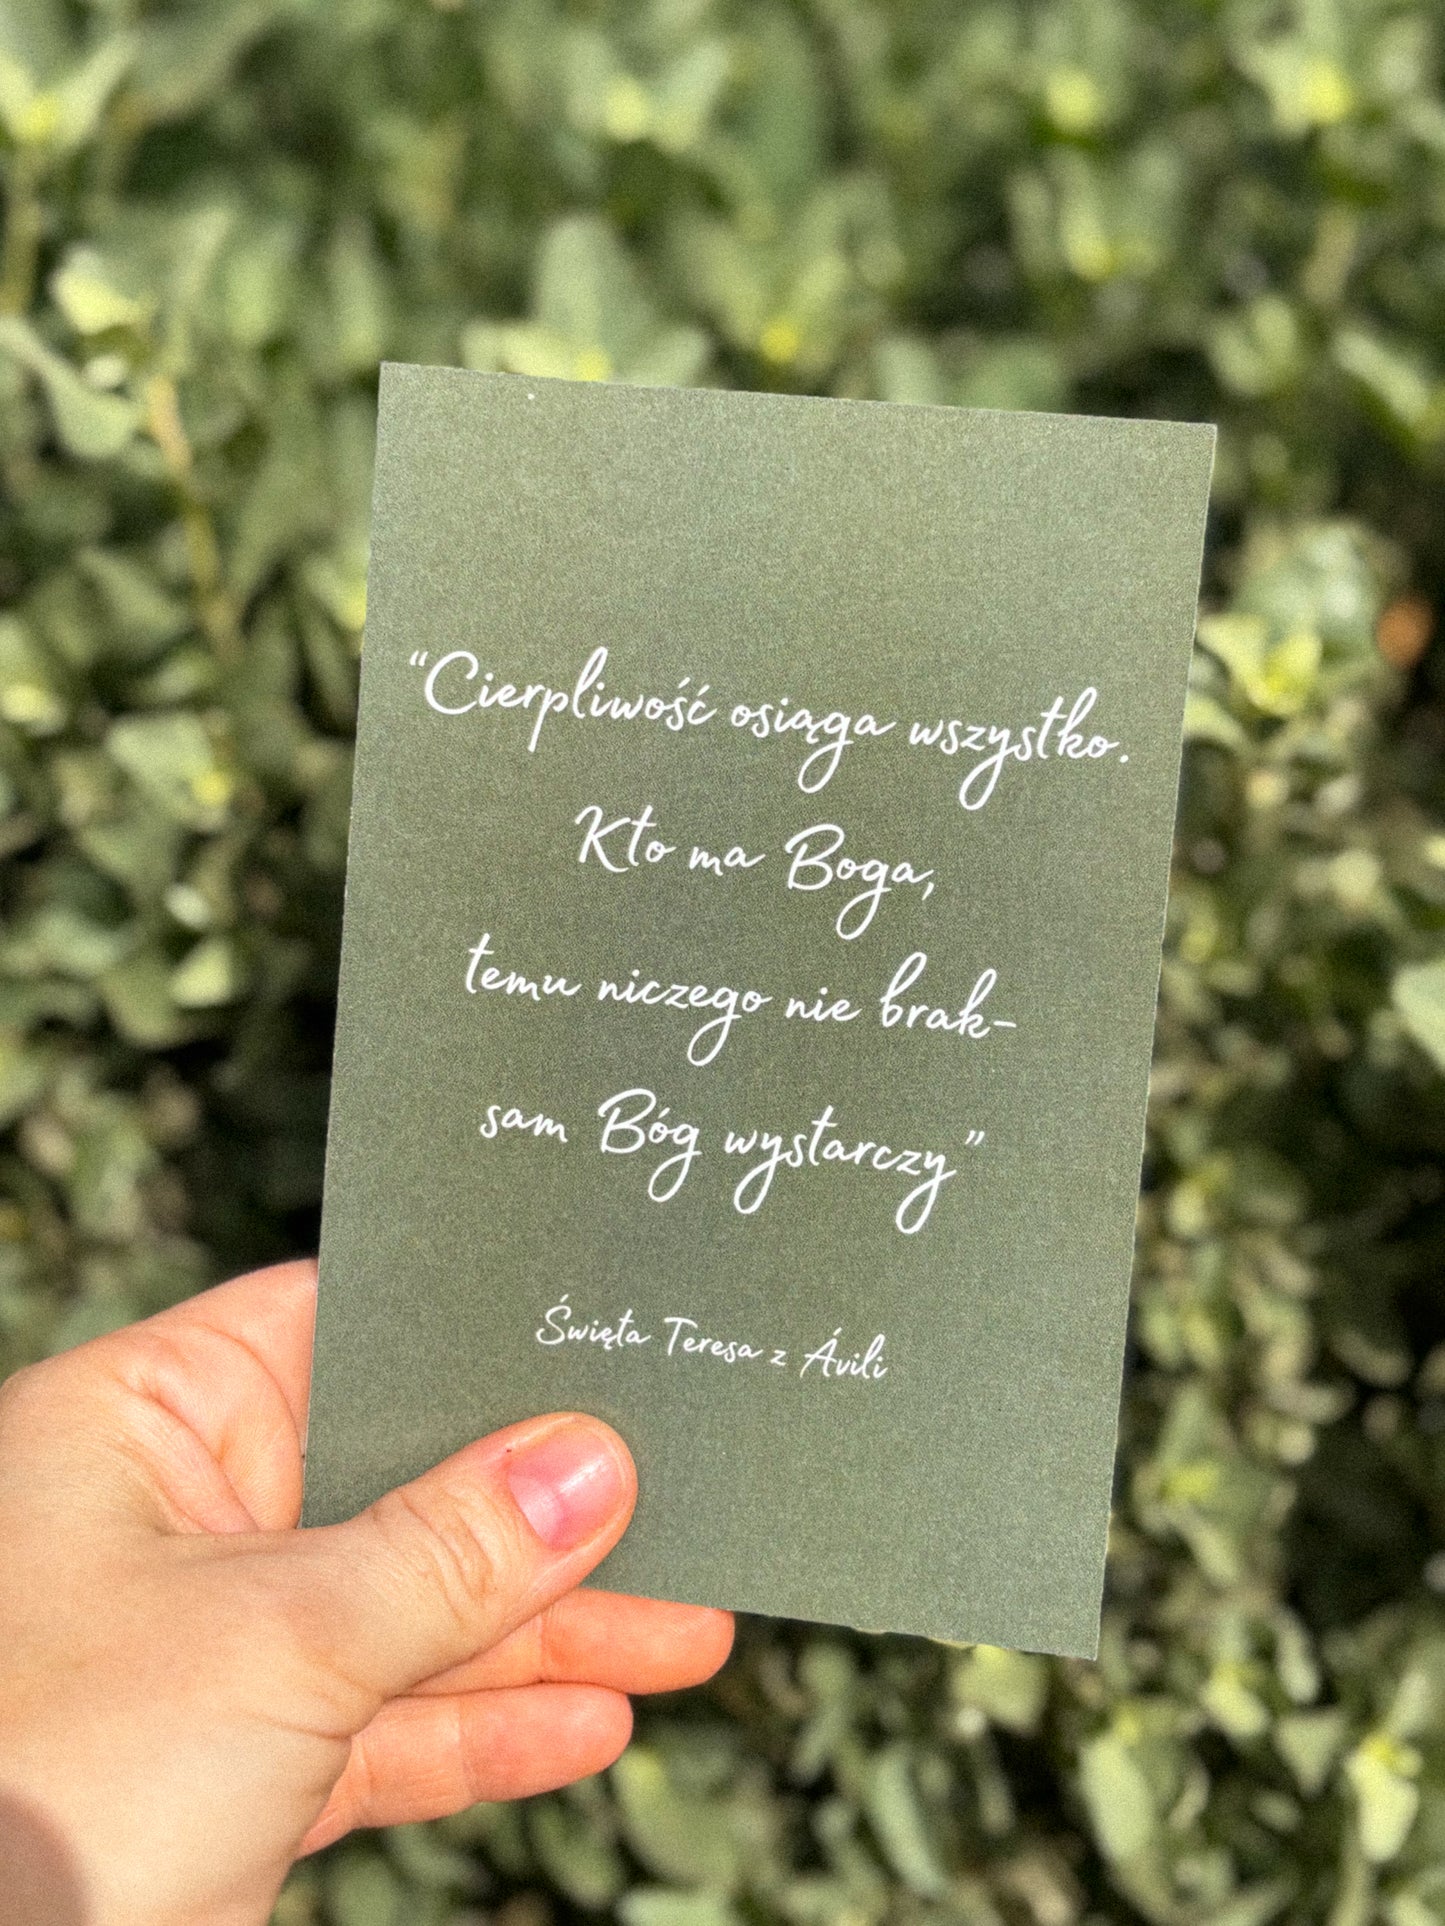 “Cierpliwość osiąga wszystko.
Kto ma Boga,
temu niczego nie brak-
sam Bóg wystarczy”
Święta Teresa z Ávili